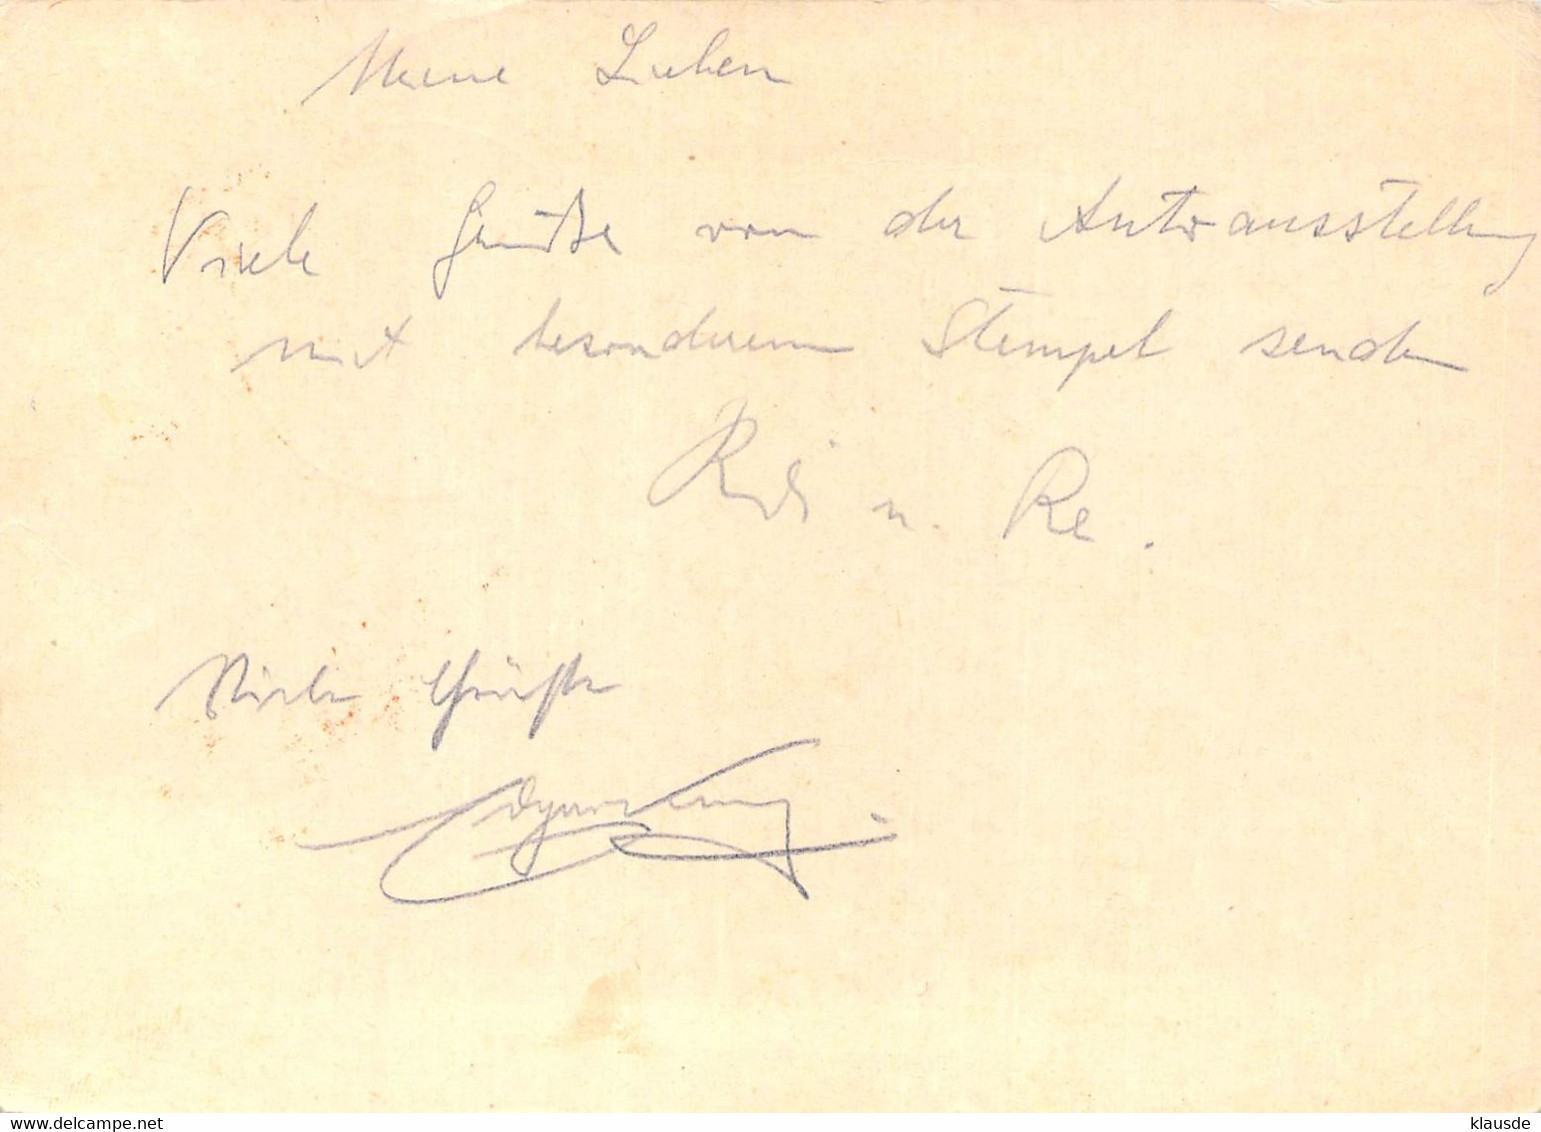 Meine Lieben
Viele Grüße von der Autoausstellung
mit besonderem Stempel senden
Rudi u. Re.
Viele Grüße
delcampe.net
klausde